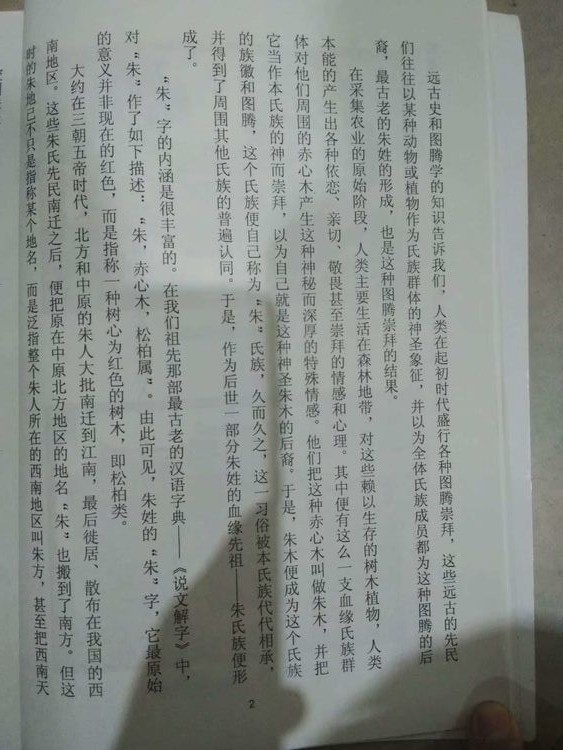 远古史和图腾学的知识告诉我们，人类在起初时代盛行各种图腾崇拜，这些远古的先民
们往往以某种动物或植物作为氏族群体的神圣象征，并以为全体氏族成员都为这种图腾的后
裔，最古老的朱姓的形成，也是这种图腾崇拜的结果。
在采集农业的原始阶段，人类主要生活在森林地带，对这些赖以生存的树木植物，人类
本能的产生出各种依恋、亲切、敬畏甚至崇拜的情感和心理。其中便有这么一支血缘氏族群
体对他们周围的赤心木产生这种神秘而深厚的特殊情感。他们把这种赤心木叫做朱木，并把
它当作本氏族的神而崇拜，以为自己就是这种神圣朱木的后裔。于是，朱木便成为这个氏族
的族徽和图腾，这个氏族便自己称为“朱”氏族，久而久之，这一习俗被本氏族代代相承，
并得到了周围其他氏族的普遍认同。于是，作为后世一部分朱姓的血缘先祖——朱氏族便形
成了。
“朱”字的内涵是很丰富的。在我们祖先那部最古老的汉语字典——《说文解字》中，
对“朱”作了如下描述：“朱，赤心木，松柏属”。由此可见，朱姓的“朱”字，它最原始
的意义并非现在的红色，而是指称一种树心为红色的树木，即松柏类。
大约在三朝五帝时代，北方和中原的朱人大批南迁到江南，最后徙居、散布在我国的西
南地区。这些朱氏先民南迁之后，便把原在中原北方地区的地名“朱”也搬到了南方。但这
时的朱地已不只是指称某个地名，而是泛指整个朱人所在的西南地区叫朱方，甚至把西南天
2